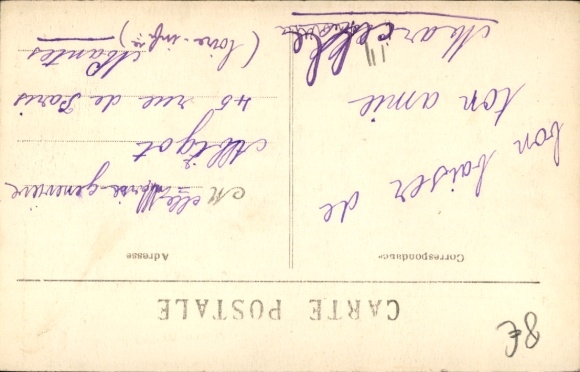 CARTE POSTALE
Correspondance
Adresse
bon baiser de
ton amie
Marcelle
Melle Marie-geneviève
Abigot
45 rue de Paris
Nantes
(Loire-infre)
8€